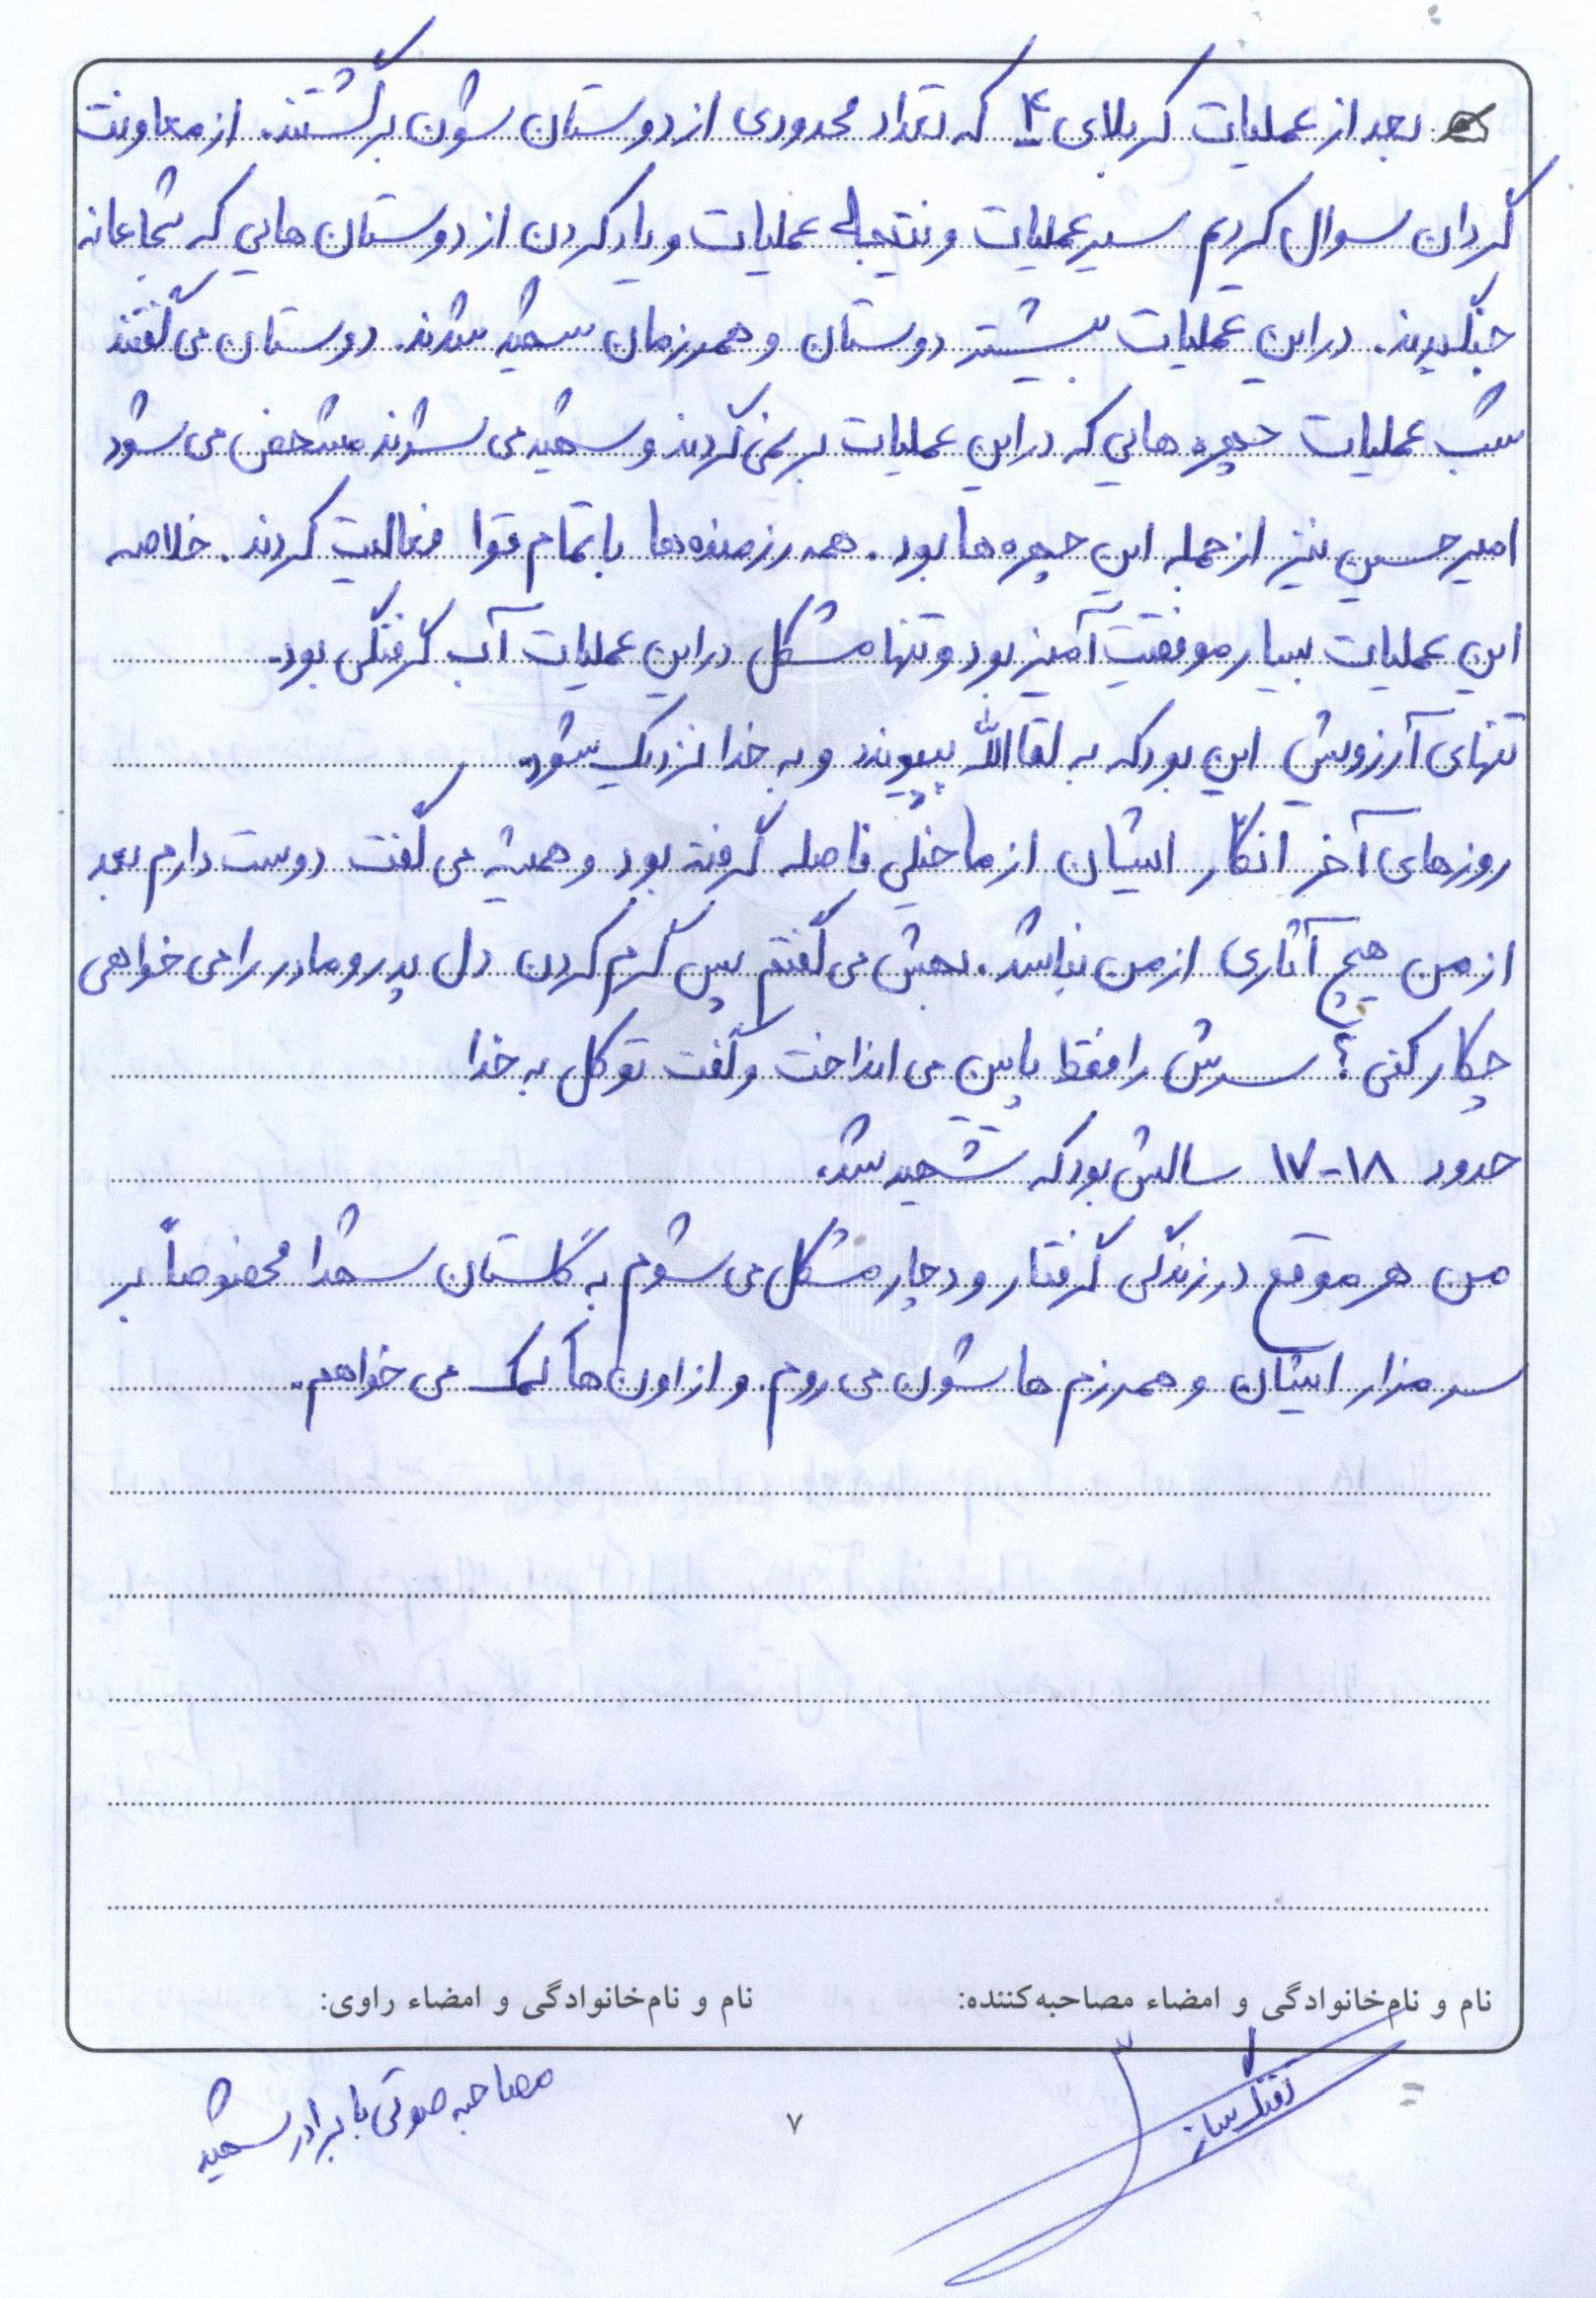 بعد از عملیات کربلای ۴ که تعداد محدودی از دوستان شون برگشتند. از معاونت
گردان سوال کردیم سیر عملیات و نتیجه عملیات و یاد کردن از دوستان هایی که شجاعانه
جنگیدند. در این عملیات بیشتر دوستان و همرزمان شهید شدند. دوستان می گفتند
شب عملیات چهره هایی که در این عملیات بر نمی گردند و شهید می شوند مشخص می شود
امیرحسین نیز از جمله این چهره ها بود. همه رزمنده ها با تمام قوا فعالیت کردند. خلاصه
این عملیات بسیار موفقیت آمیز بود و تنها مشکل در این عملیات آب گرفتگی بود.
تنهای آرزویش این بود که به لقاالله بپیوندد و به خدا نزدیک بشود.
روزهای آخر انگار ایشان از ما خیلی فاصله گرفته بود و همیشه می گفت دوست دارم بعد
از من هیچ آثاری از من نباشد. بهش می گفتم پس گرم کردن دل پدر و مادر را می خواهی
چکار کنی؟ سرش را فقط پایین می انداخت و گفت توکل به خدا
حدود ۱۸-۱۷ سالش بود که شهید شد.
من هر موقع در زندگی گرفتار و دچار مشکل می شوم به گلستان شهدا مخصوصاً بر
سر مزار ایشان و همرزم ها شون می روم و از اون ها کمک می خواهم.
نام و نام‌خانوادگی و امضاء مصاحبه‌کننده: نام و نام‌خانوادگی و امضاء راوی:
تفنگساز
مصاحبه صوتی با برادر شهید
۷